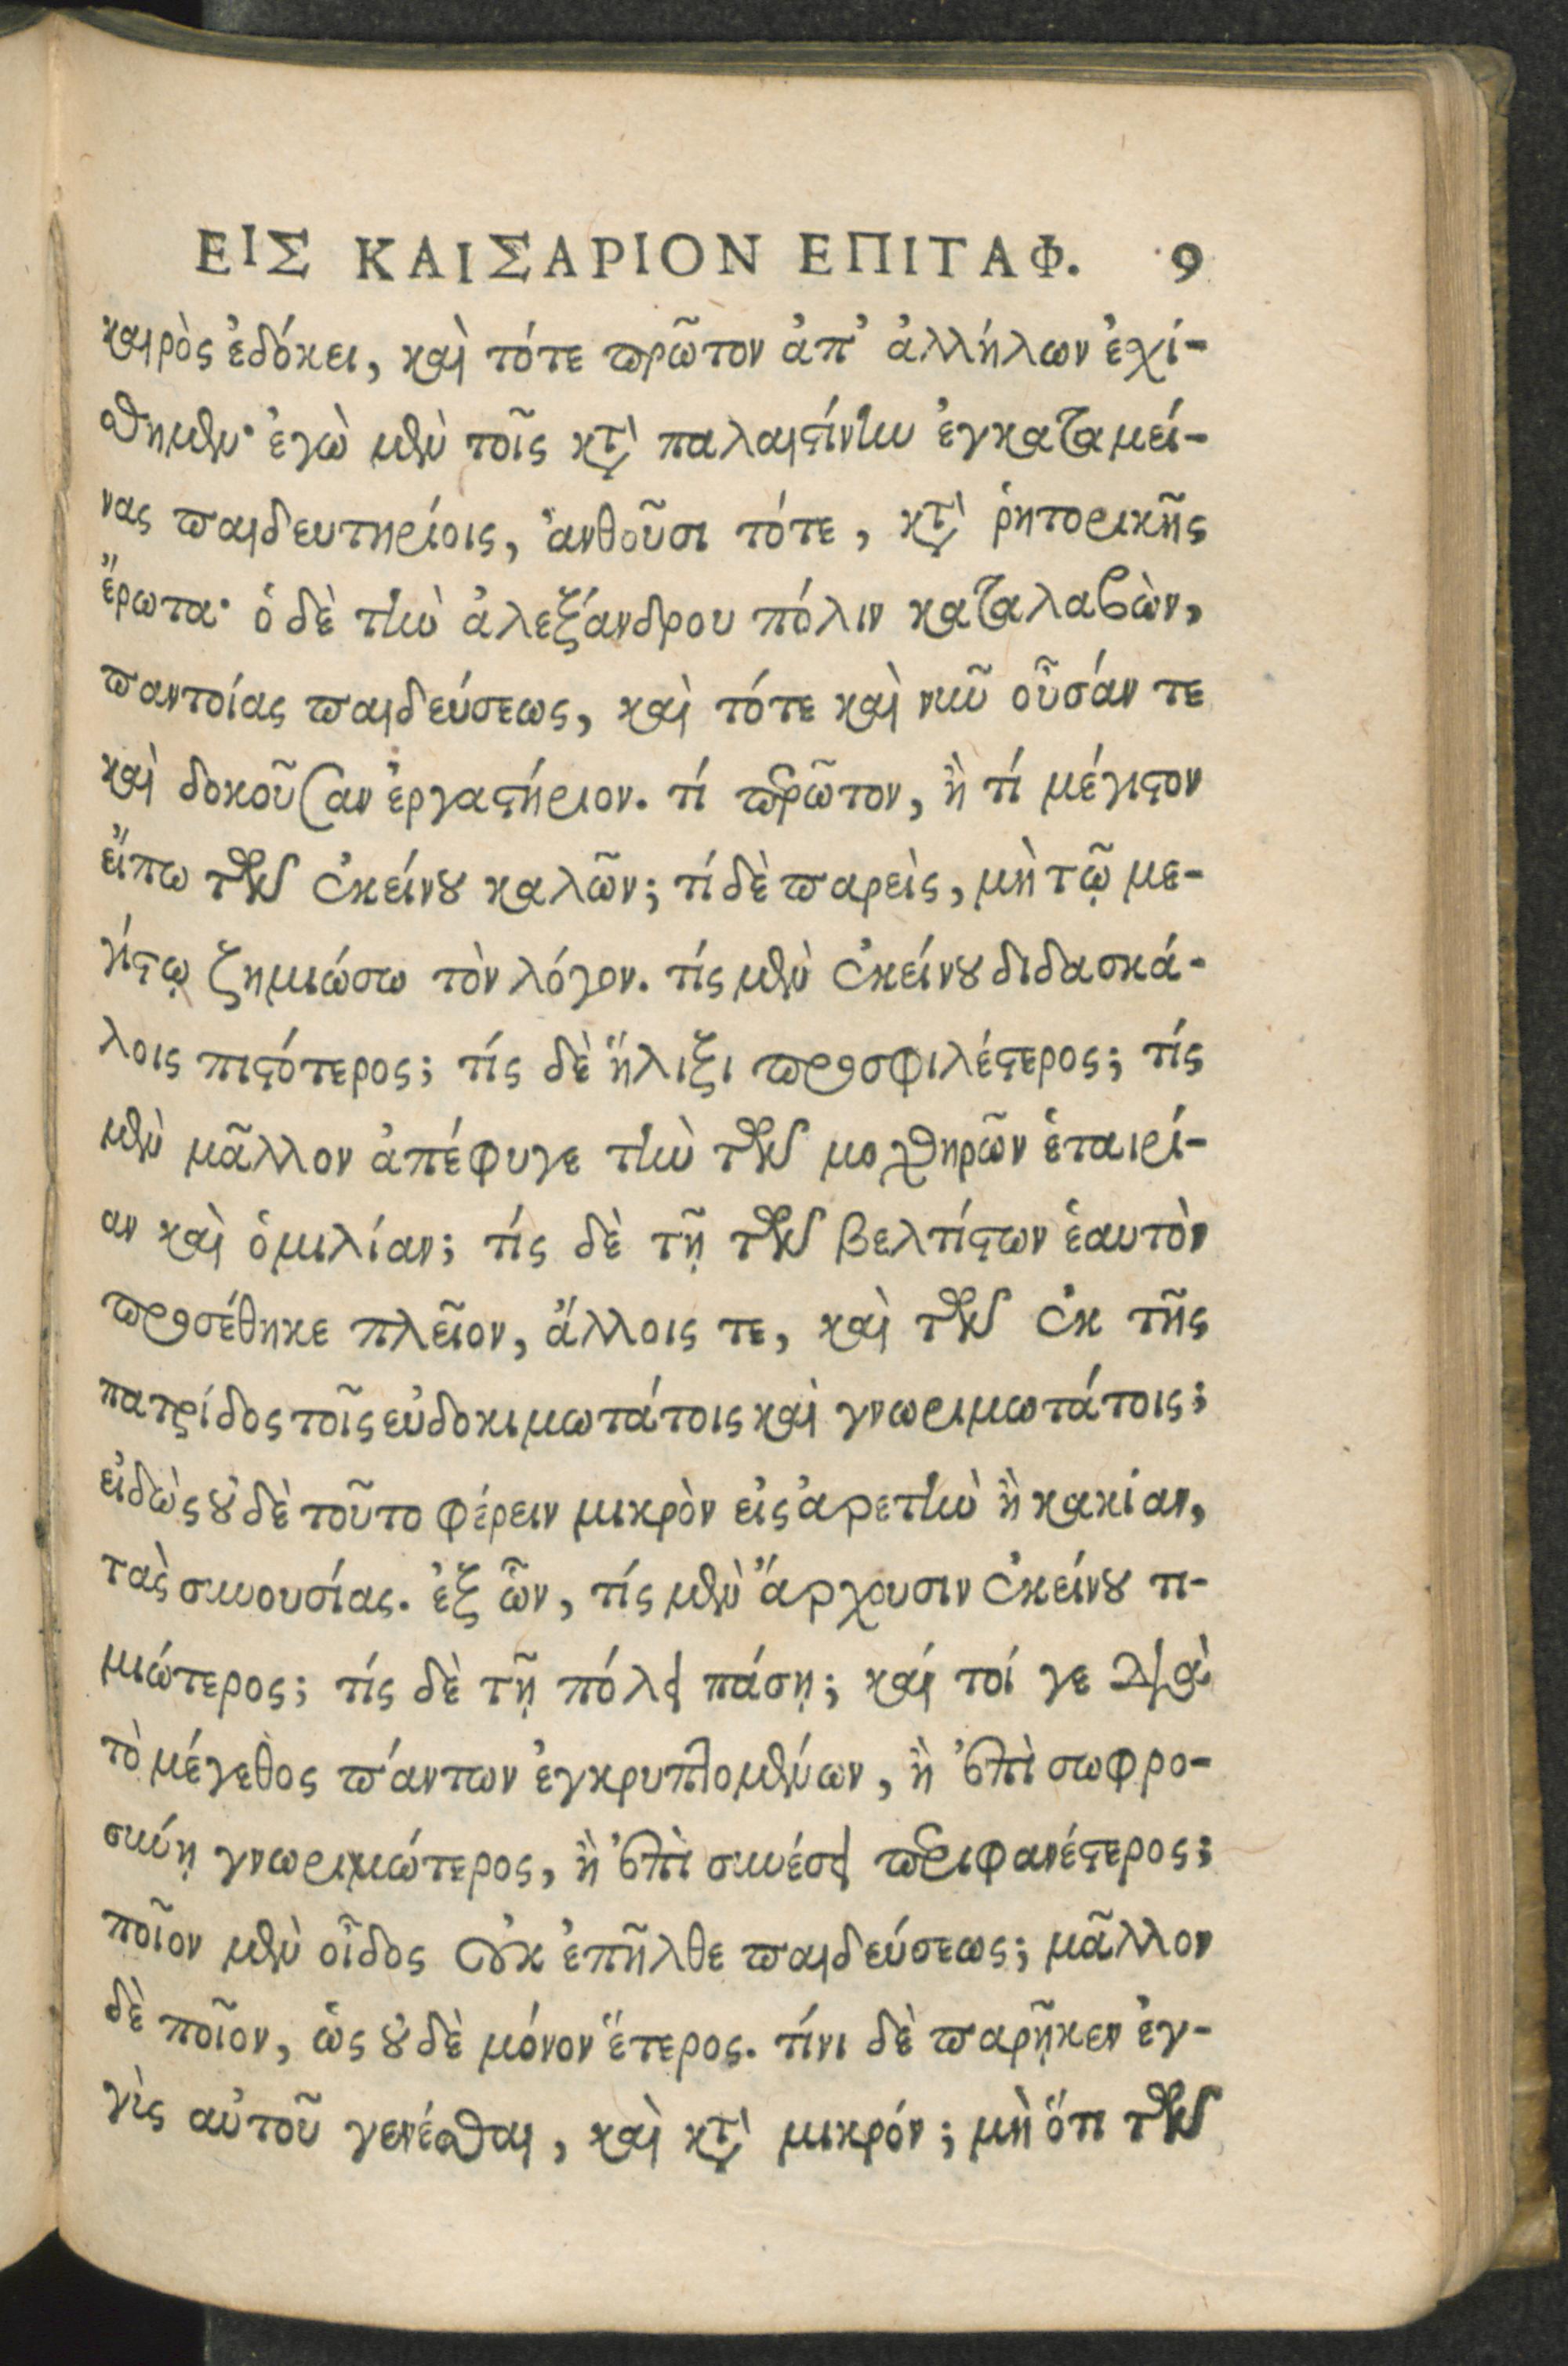 ΕΙΣ ΚΑΙΣΑΡΙΟΝ ΕΠΙΤΑΦ. 9
καιρὸς ἐδόκει, καὶ τότε πρῶτον ἀπ' ἀλλήλων ἐχί-
σθημεν· ἐγὼ μὲν τοῖς κατὰ παλαιστίνην ἐγκαταμεί-
νας παιδευτηρίοις, ἀνθοῦσι τότε, κατὰ ῥητορικῆς
ἔρωτα· ὁ δὲ τὴν ἀλεξάνδρου πόλιν καταλαβὼν,
παντοίας παιδεύσεως, καὶ τότε καὶ νῦν οὖσάν τε
καὶ δοκοῦσαν ἐργαστήριον. τί πρῶτον, ἢ τί μέγιστον
εἴπω τῶν ἐκείνου καλῶν; τί δὲ παρεὶς, μὴ τῷ με-
γίστῳ ζημιώσω τὸν λόγον. τίς μὲν ἐκείνου διδασκά-
λοις πιστότερος; τίς δὲ ἥλιξι προσφιλέστερος; τίς
μὲν μᾶλλον ἀπέφυγε τὴν τῶν μοχθηρῶν ἑταιρί-
αν καὶ ὁμιλίαν; τίς δὲ τῇ τῶν βελτίστων ἑαυτὸν
προσέθηκε πλεῖον, ἄλλοις τε, καὶ τῶν ἐκ τῆς
πατρίδος τοῖς εὐδοκιμωτάτοις καὶ γνωριμωτάτοις;
εἰδὼς οὐδὲ τοῦτο φέρειν μικρὸν εἰς ἀρετὴν ἢ κακίαν,
τὰς συνουσίας. ἐξ ὧν, τίς μὲν ἄρχουσιν ἐκείνου τι-
μιώτερος; τίς δὲ τῇ πόλει πάσῃ; καί τοί γε διὰ
τὸ μέγεθος πάντων ἐγκρυπτομένων, ἢ ἐπὶ σωφρο-
σύνῃ γνωριμώτερος, ἢ ἐπὶ συνέσει περιφανέστερος;
ποῖον μὲν οἶδος οὐκ ἐπῆλθε παιδεύσεως; μᾶλλον
δὲ ποῖον, ὡς οὐδὲ μόνον ἕτερος. τίνι δὲ παρῆκεν ἐγ-
γὶς αὐτοῦ γενέσθαι, καὶ κατὰ μικρόν; μὴ ὅτι τῶν